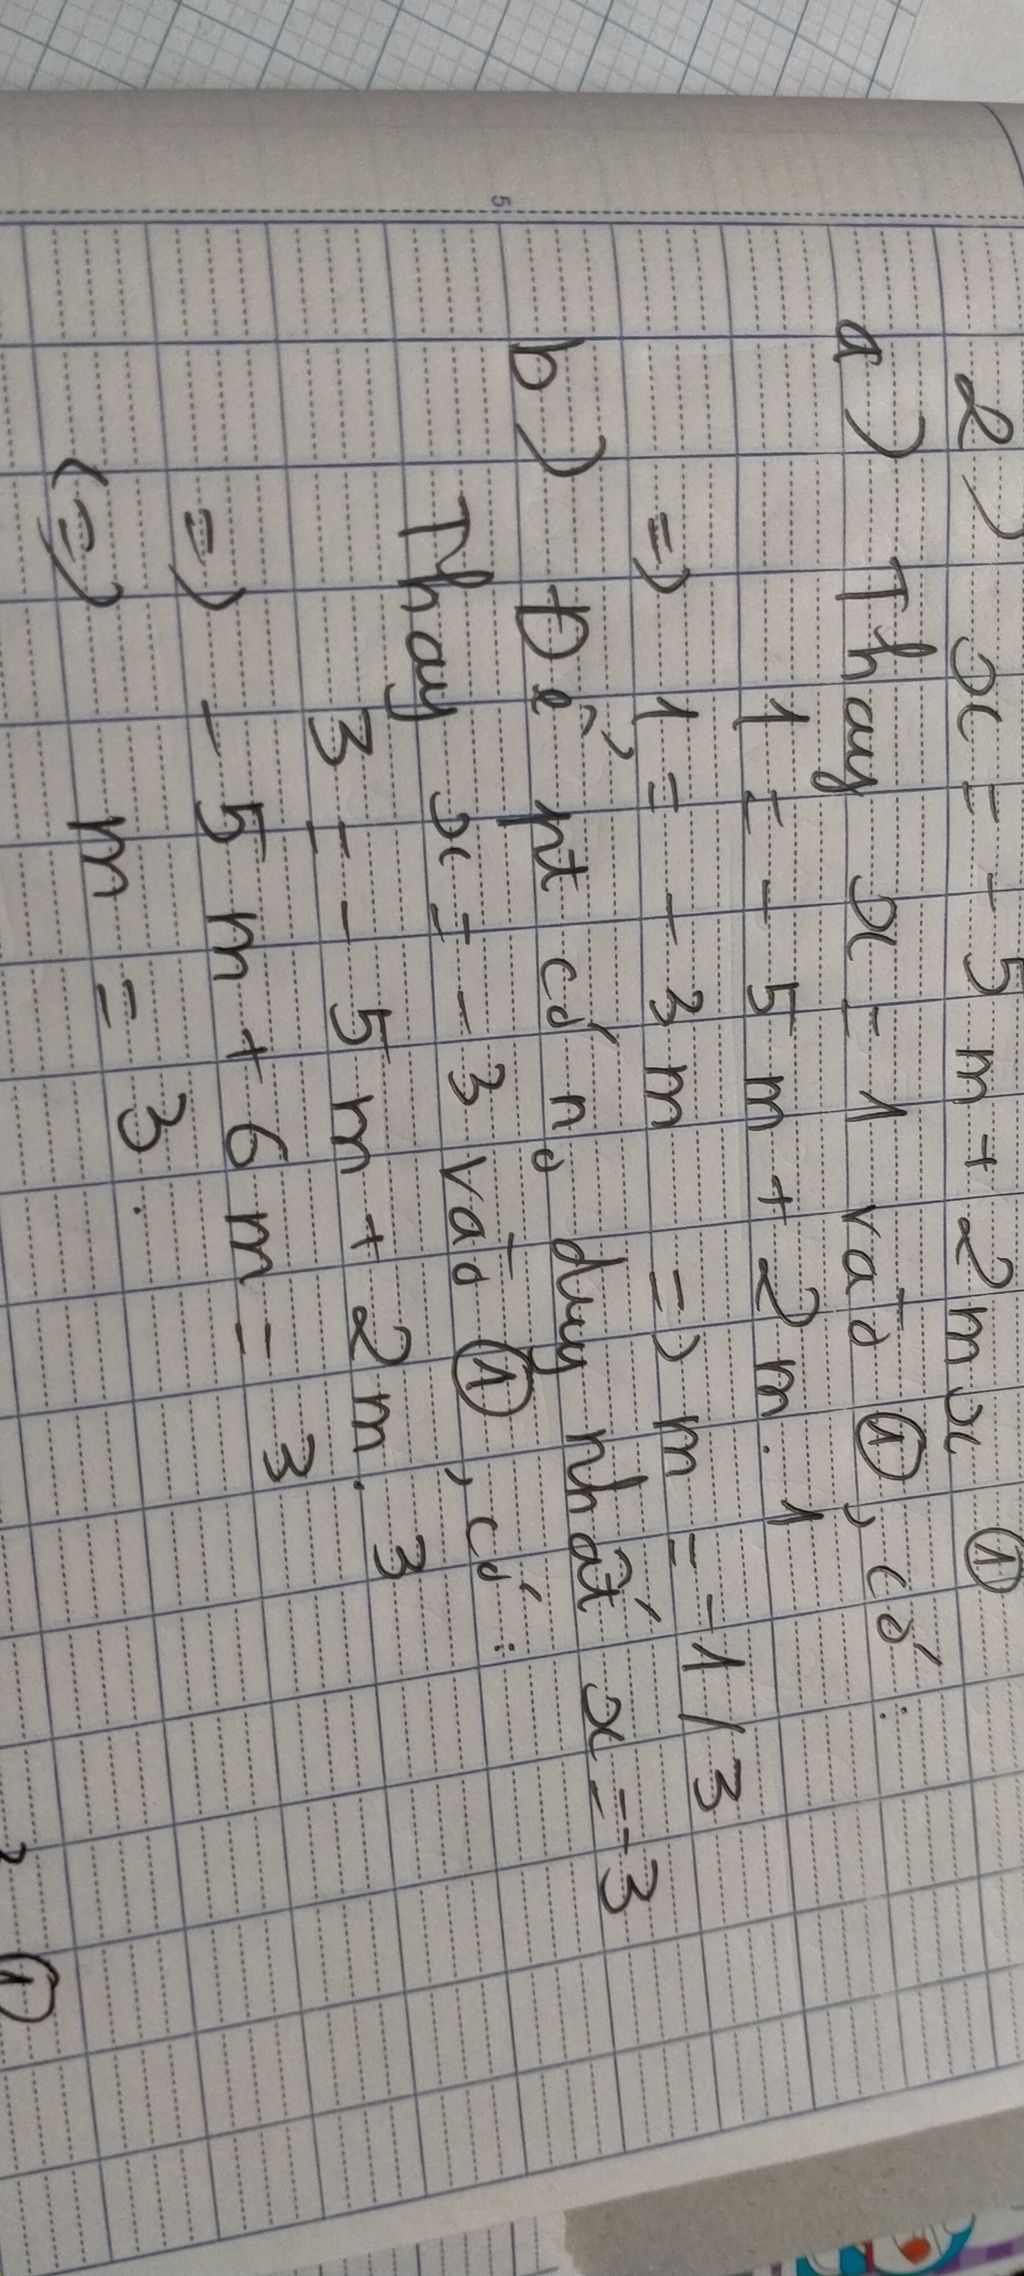 2) x = - 5m + 2mx ①
a) Thay x = 1 vào ①, có :
1 = - 5m + 2m . 1
=> 1 = - 3m => m = -1/3
b) Để pt có no duy nhất x = -3
Thay x = - 3 vào ①, có :
3 = - 5m + 2m . 3
=> - 5m + 6m = 3
<=> m = 3 .
①
5